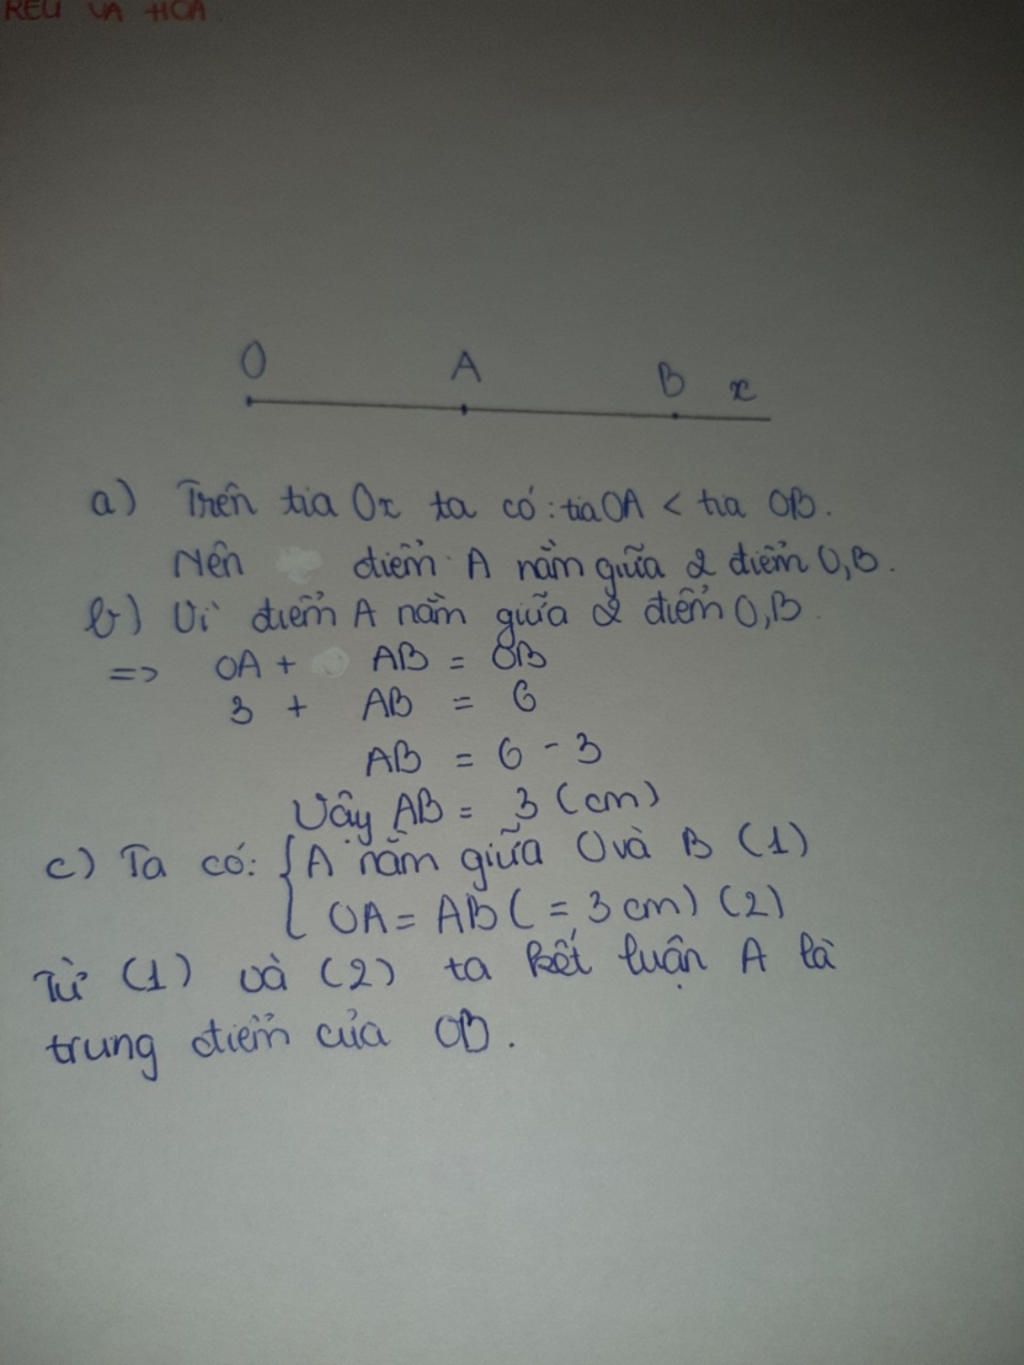 REU VA HOA
O A B x
a) Trên tia Ox ta có: tia OA < tia OB.
Nên điểm A nằm giữa 2 điểm O,B.
b) Vì điểm A nằm giữa 2 điểm O,B.
=> OA + AB = OB
3 + AB = 6
AB = 6 - 3
Vậy AB = 3 (cm)
c) Ta có: { A nằm giữa O và B (1)
OA = AB ( = 3 cm) (2)
Từ (1) và (2) ta kết luận A là
trung điểm của OB.